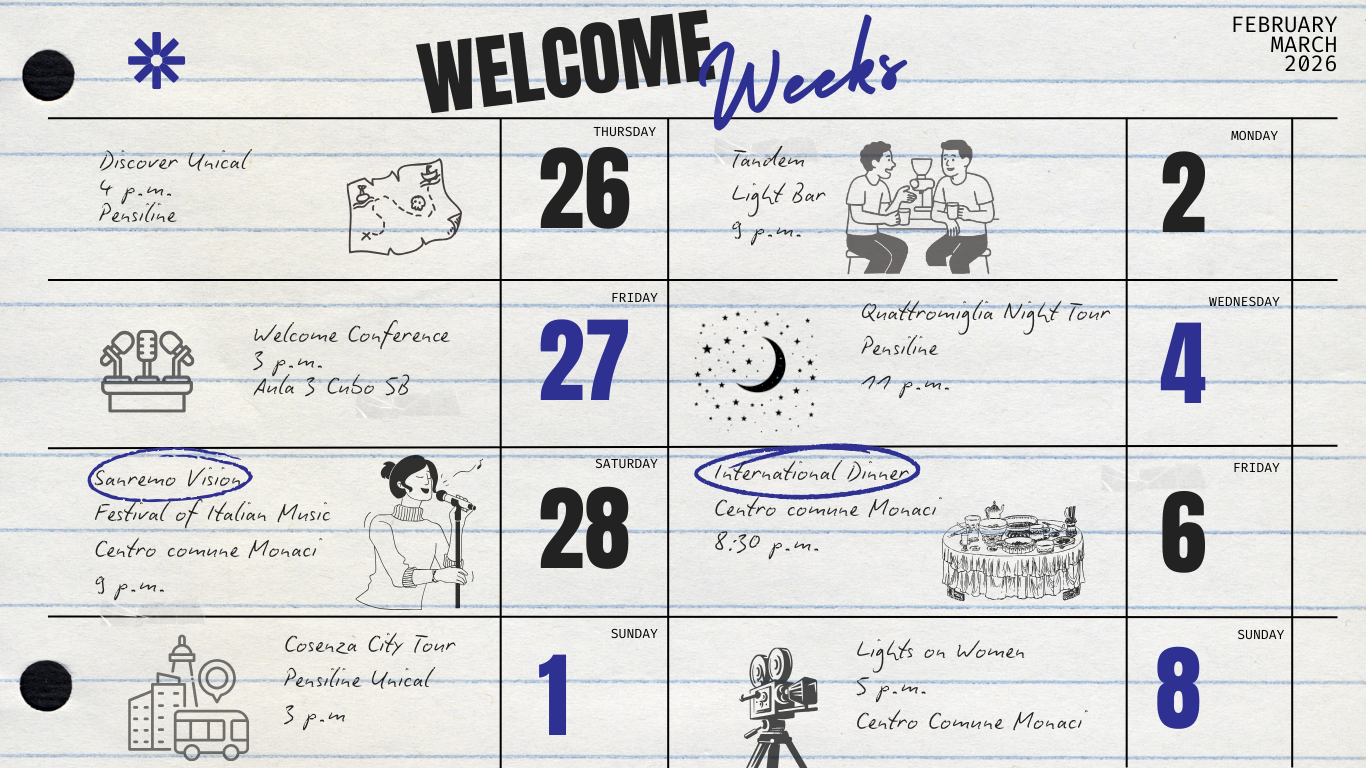 WELCOME Weeks
FEBRUARY
MARCH
2026
Discover Unical
4 p.m.
Pensiline
THURSDAY
26
Welcome Conference
3 p.m.
Aula 3 Cubo 5B
FRIDAY
27
Sanremo Vision
Festival of Italian Music
Centro comune Monaci
9 p.m.
SATURDAY
28
Cosenza City Tour
Pensiline Unical
3 p.m
SUNDAY
1
Tandem
Light Bar
9 p.m.
MONDAY
2
Quattromiglia Night Tour
Pensiline
11 p.m.
WEDNESDAY
4
International Dinner
Centro comune Monaci
8:30 p.m.
FRIDAY
6
Lights on Women
5 p.m.
Centro Comune Monaci
SUNDAY
8